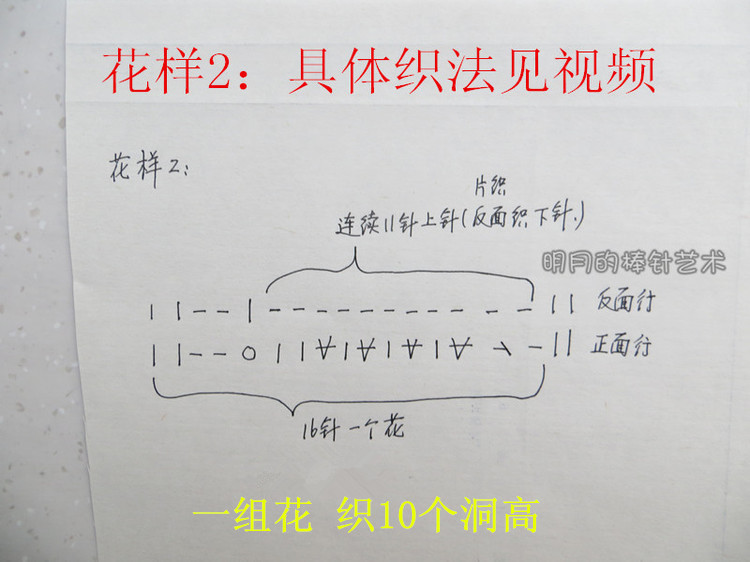 花样2：具体织法见视频
花样2：
片织
连续11针上针(反面织下针.)
明月的棒针艺术
||--|-----------|| 反面行
||--O||V|V|V|V\-|| 正面行
16针一个花
一组花 织10个洞高